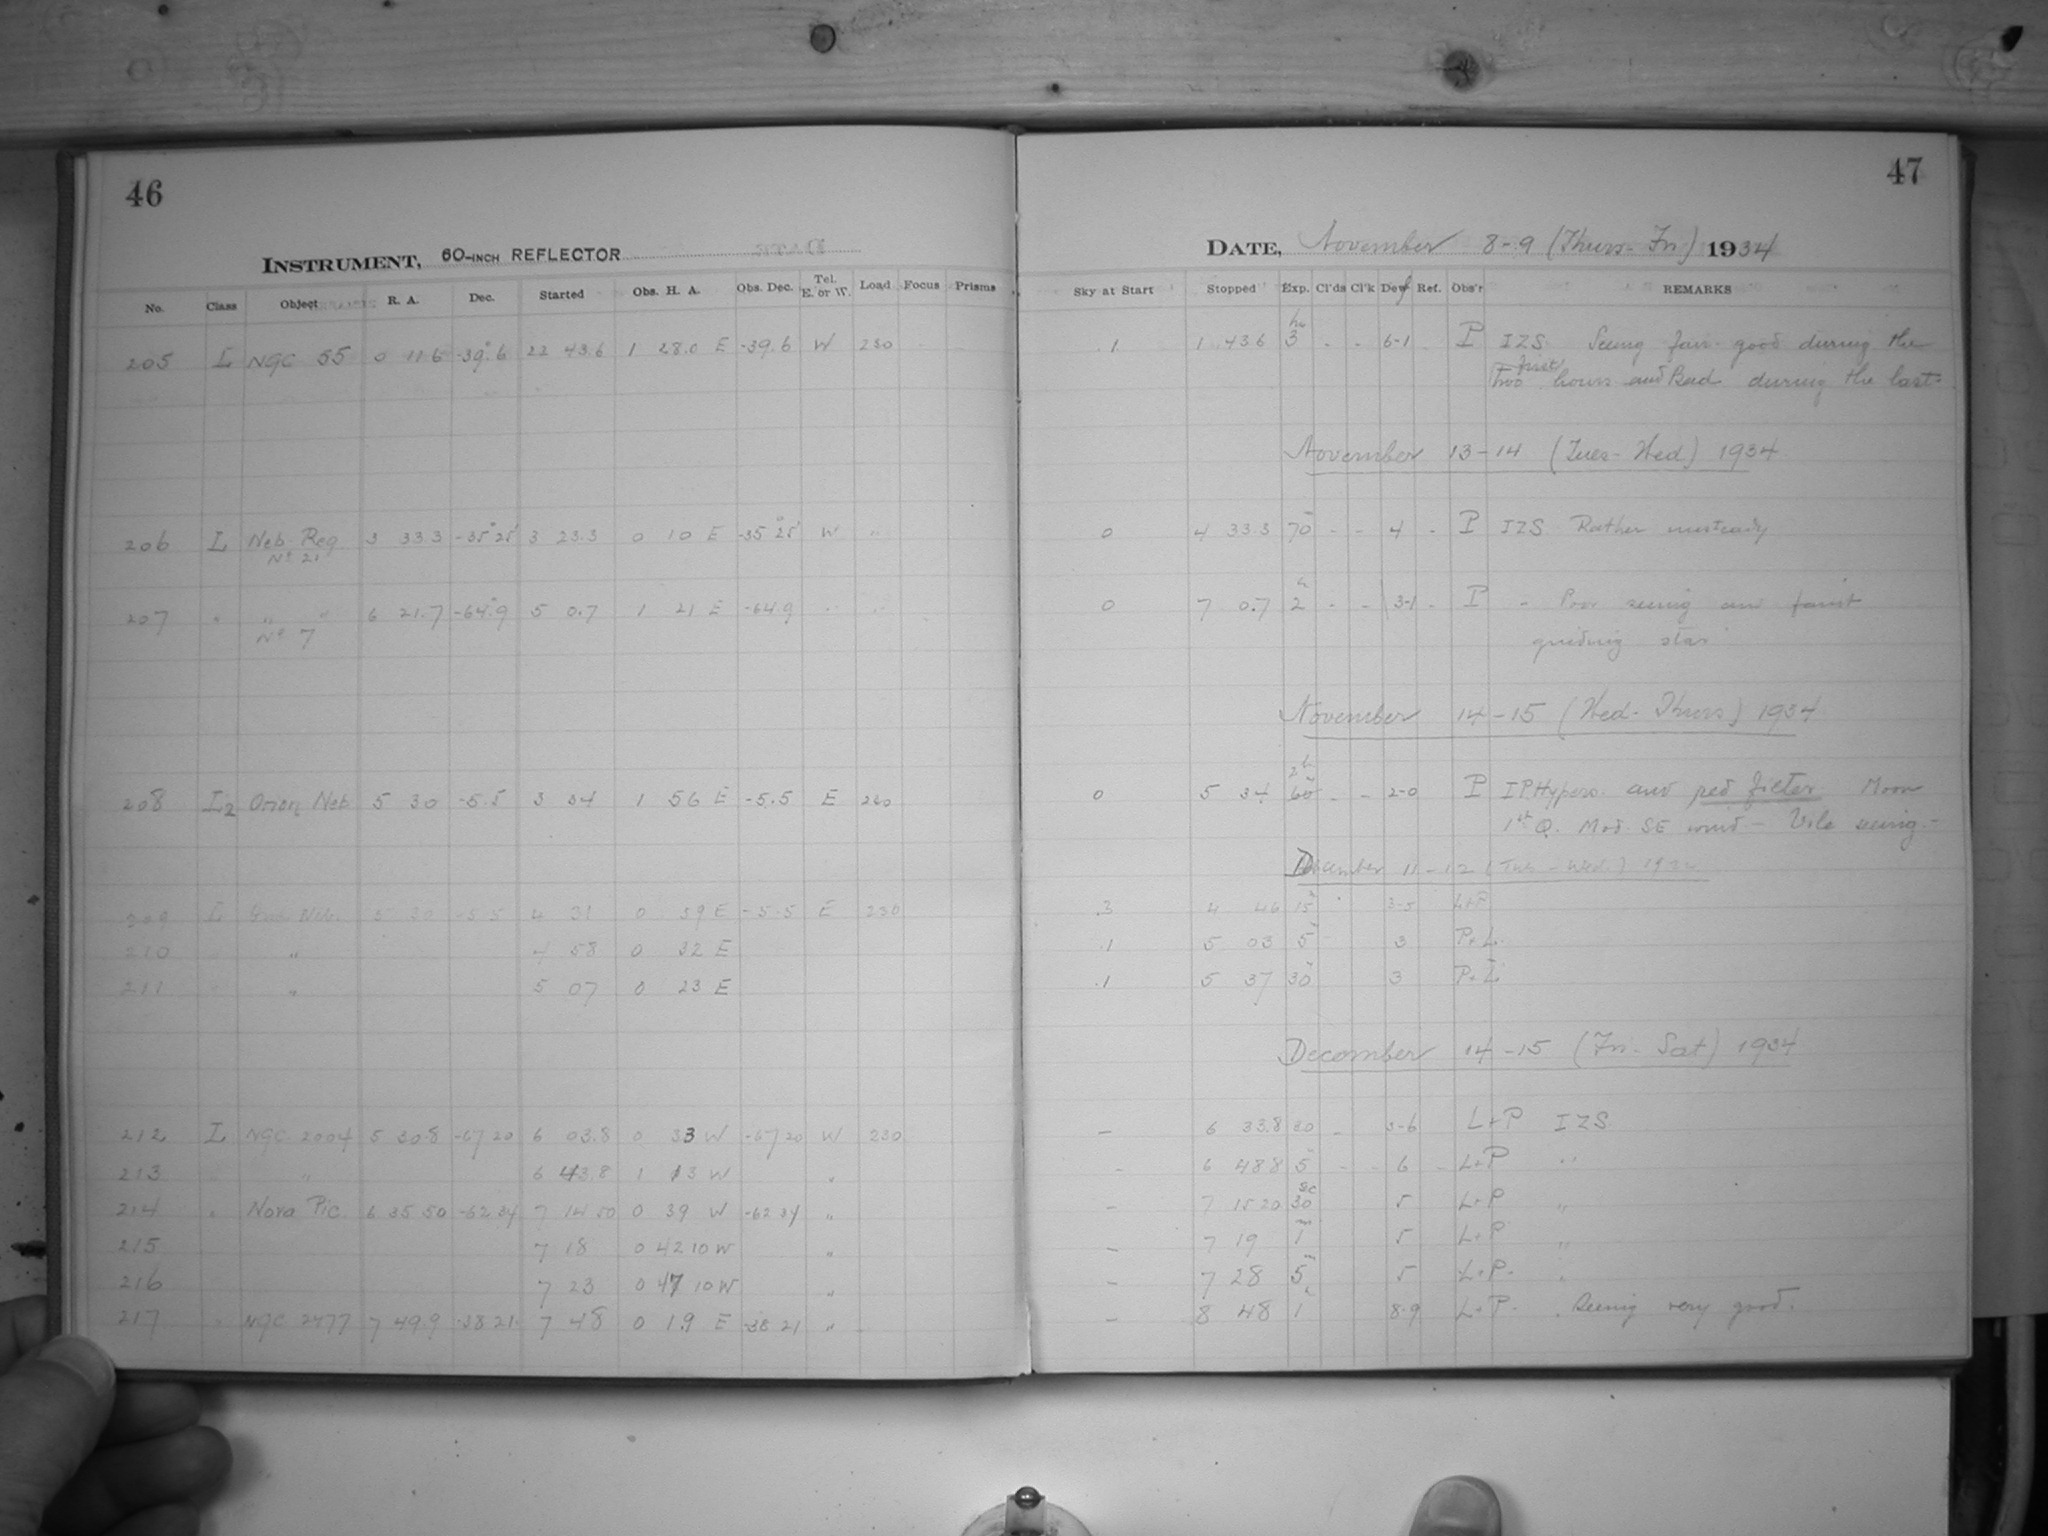 46
47
INSTRUMENT, 60-INCH REFLECTOR
DATE, November 8-9 (Thurs-Fri) 1934
No. Class Object R. A. Dec. Started Obs. H. A. Obs. Dec. Tel. E. or W. Load Focus Prisms
Sky at Start Stopped Exp. Cl'ds Cl'k Dew Ref. Obs'r REMARKS
205 L NGC 55 0 11.6 -39°.6 22 43.6 1 28.0 E -39.6 W 230 .1 1 43.6 3 h - - 6-1 P IZS Seeing fair good during the
first hours and Bad during the last-
November 13-14 (Tues-Wed) 1934
206 L Neb Reg 3 33.3 -35° 25' 3 23.3 0 10 E -35° 25' W " 0 4 33.3 70 - - 4 - P IZS Rather unsteady
No 21
207 " " " 6 21.7 -64°.9 5 0.7 1 21 E -64.9 " " 0 7 0.7 2 h - - 3-1 - P - Poor seeing and faint
No 7 guiding star
November 14-15 (Wed-Thurs) 1934
208 L2 Orion Neb 5 30 -5.5 3 34 1 56 E -5.5 E 230 0 5 34 60 - - 2-0 P IPHypers. and red filter Moon
1st Q. Mod SE wind - Vile seeing-
December 11-12 (Tues-Wed)
209 L Neb. 5 30 -5.5 4 31 0 59 E -5.5 E 230 .3 4 46 15 3-5 L+P
210 " 4 58 0 32 E .1 5 03 5 3 P+L
211 " 5 07 0 23 E .1 5 37 30 3 P+L
December 14-15 (Fri-Sat) 1934
212 L NGC 2004 5 30.8 -67 20 6 03.8 0 33 W -67 20 W 230 - 6 33.8 30 - 3-6 L+P IZS
213 " 6 43.8 1 13 W " - 6 48.8 5 - - 6 - L+P "
214 " Nova Pic. 6 35 50 -62 34 7 14 50 0 39 W -62 34 " - 7 15 20 30 sec 5 L+P "
215 7 18 0 42 10 W " - 7 19 1 m 5 L+P "
216 7 23 0 47 10 W " - 7 28 5 m 5 L+P -
217 " NGC 2477 7 49.9 -38 21 7 48 0 1.9 E -38 21 " - 8 48 1 8-9 L+P - Seeing very good.